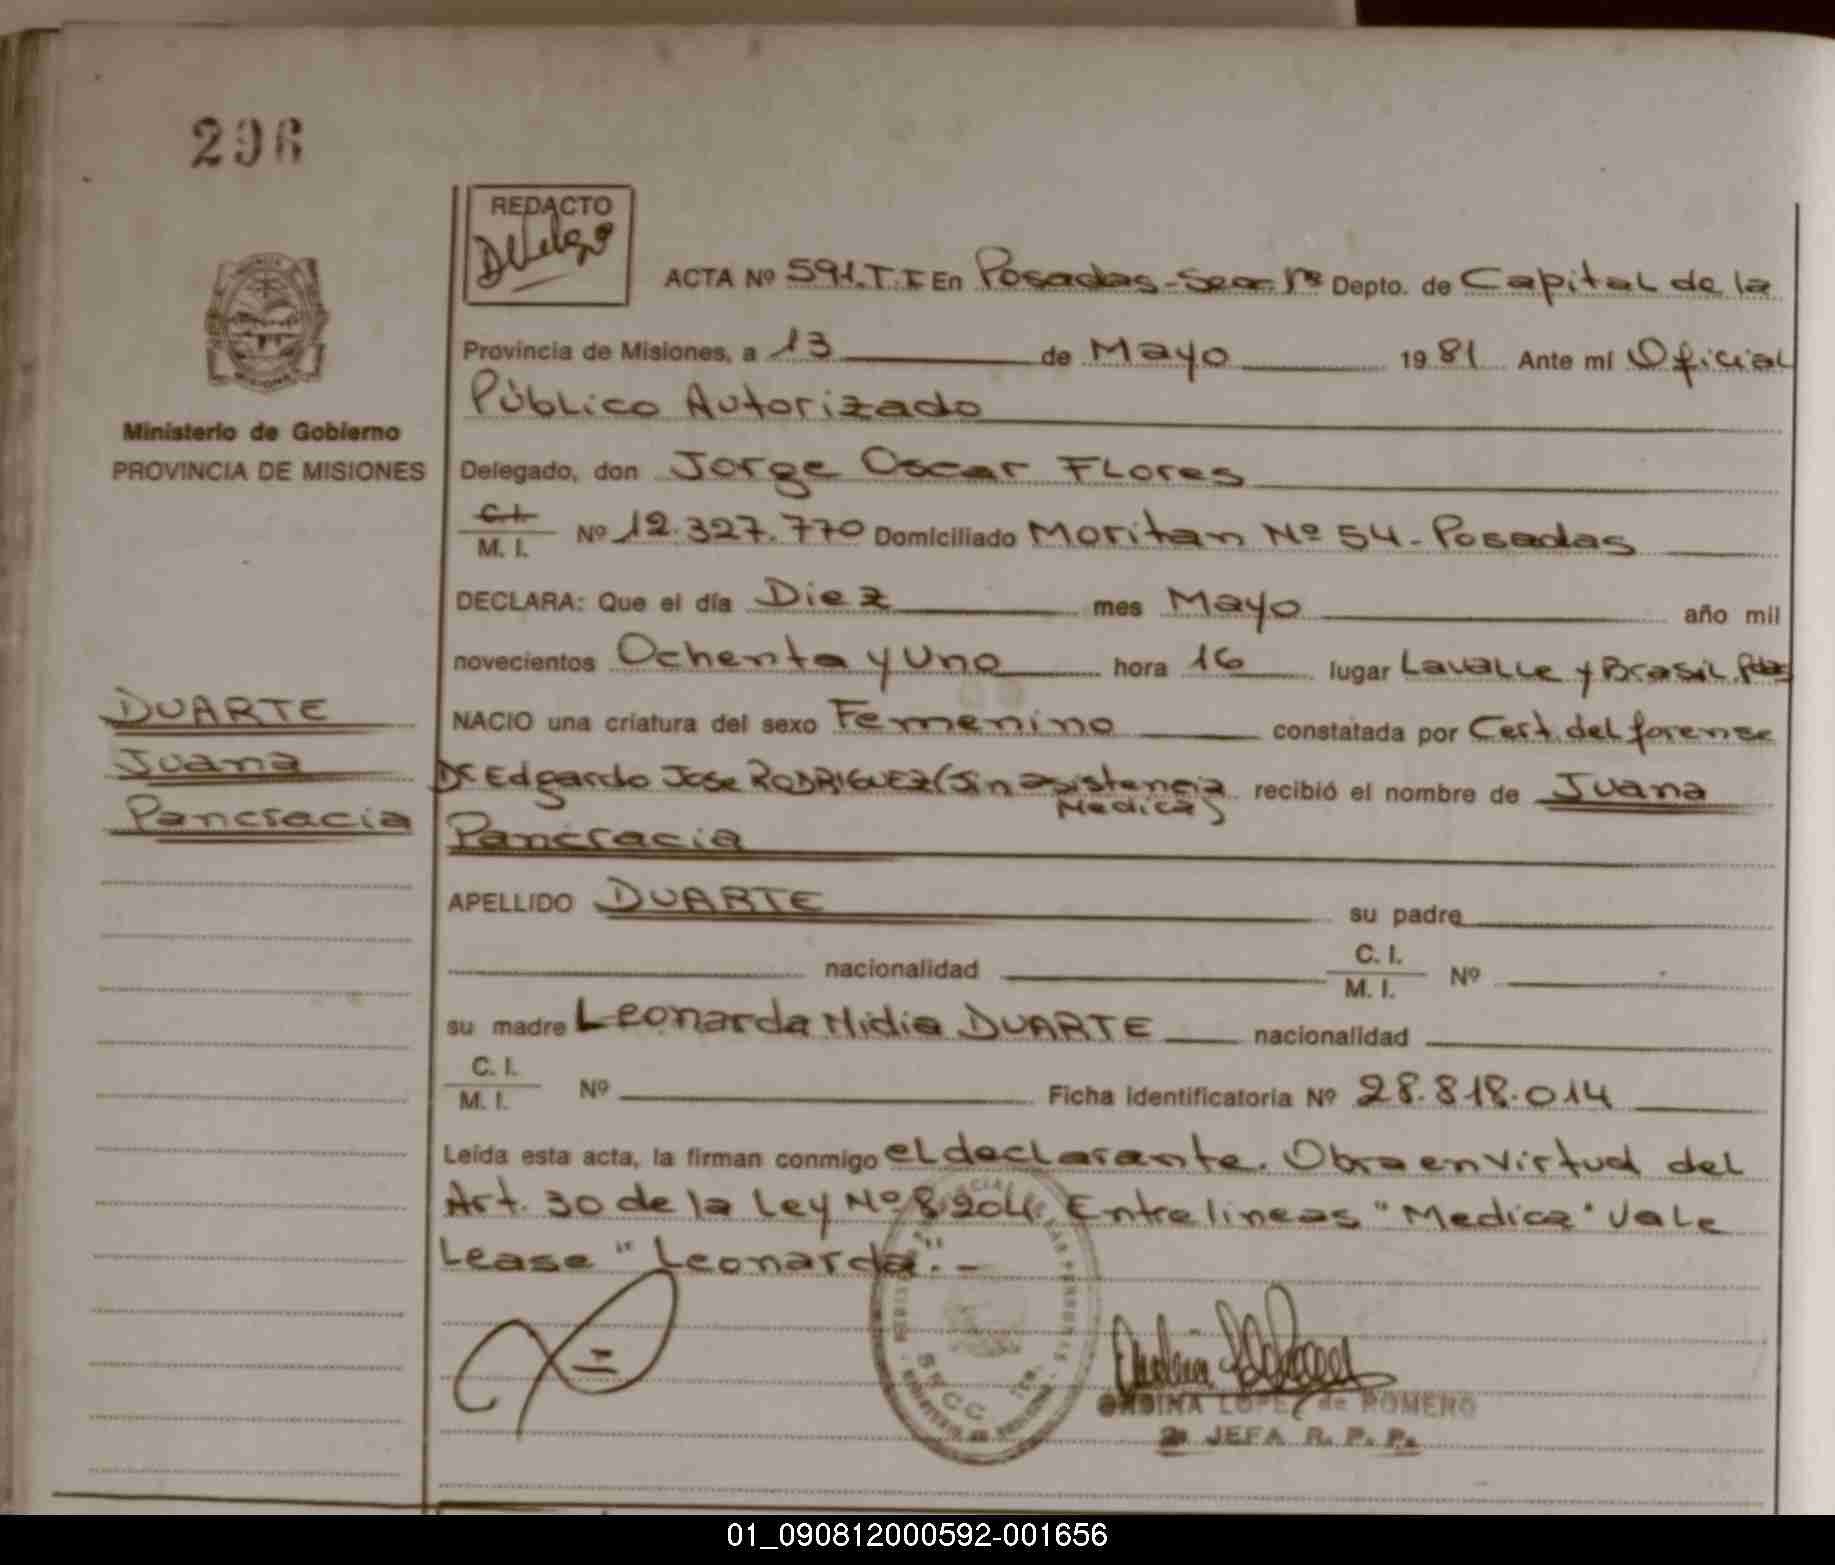 296
REDACTO
ACTA Nº 591.T.I En Posadas-Secc. 1ª Depto. de Capital de la
Provincia de Misiones, a 13 de Mayo 1981 Ante mí Oficial
Público Autorizado
Ministerio de Gobierno
PROVINCIA DE MISIONES
Delegado, don Jorge Oscar FLores
C.I.
M. I. Nº 12.327.770 Domiciliado Moritan Nº 54 - Posadas
DECLARA: Que el día Diez mes Mayo año mil
novecientos Ochenta y Uno hora 16 lugar LavaLLe y Brasil. Pdas
DUARTE
Juana
Pancracia
NACIO una criatura del sexo Femenino constatada por Cert. del forense
Dr Edgardo Jose RODRIGUEZ (Sin asistencia
Medica) recibió el nombre de Juana
Pancracia
APELLIDO DUARTE su padre
nacionalidad C. I.
M. I. Nº
su madre Leonarda Nidia DUARTE nacionalidad
C. I.
M. I. Nº Ficha identificatoria Nº 28.818.014
Leída esta acta, la firman conmigo el declarante. Obra en virtud del
Art. 30 de la Ley Nº 8.204. Entre lineas "Medica" vale
Lease "Leonarda".-
ONDINA LOPEZ de ROMERO
2ª JEFA R. P. P.
01_090812000592-001656